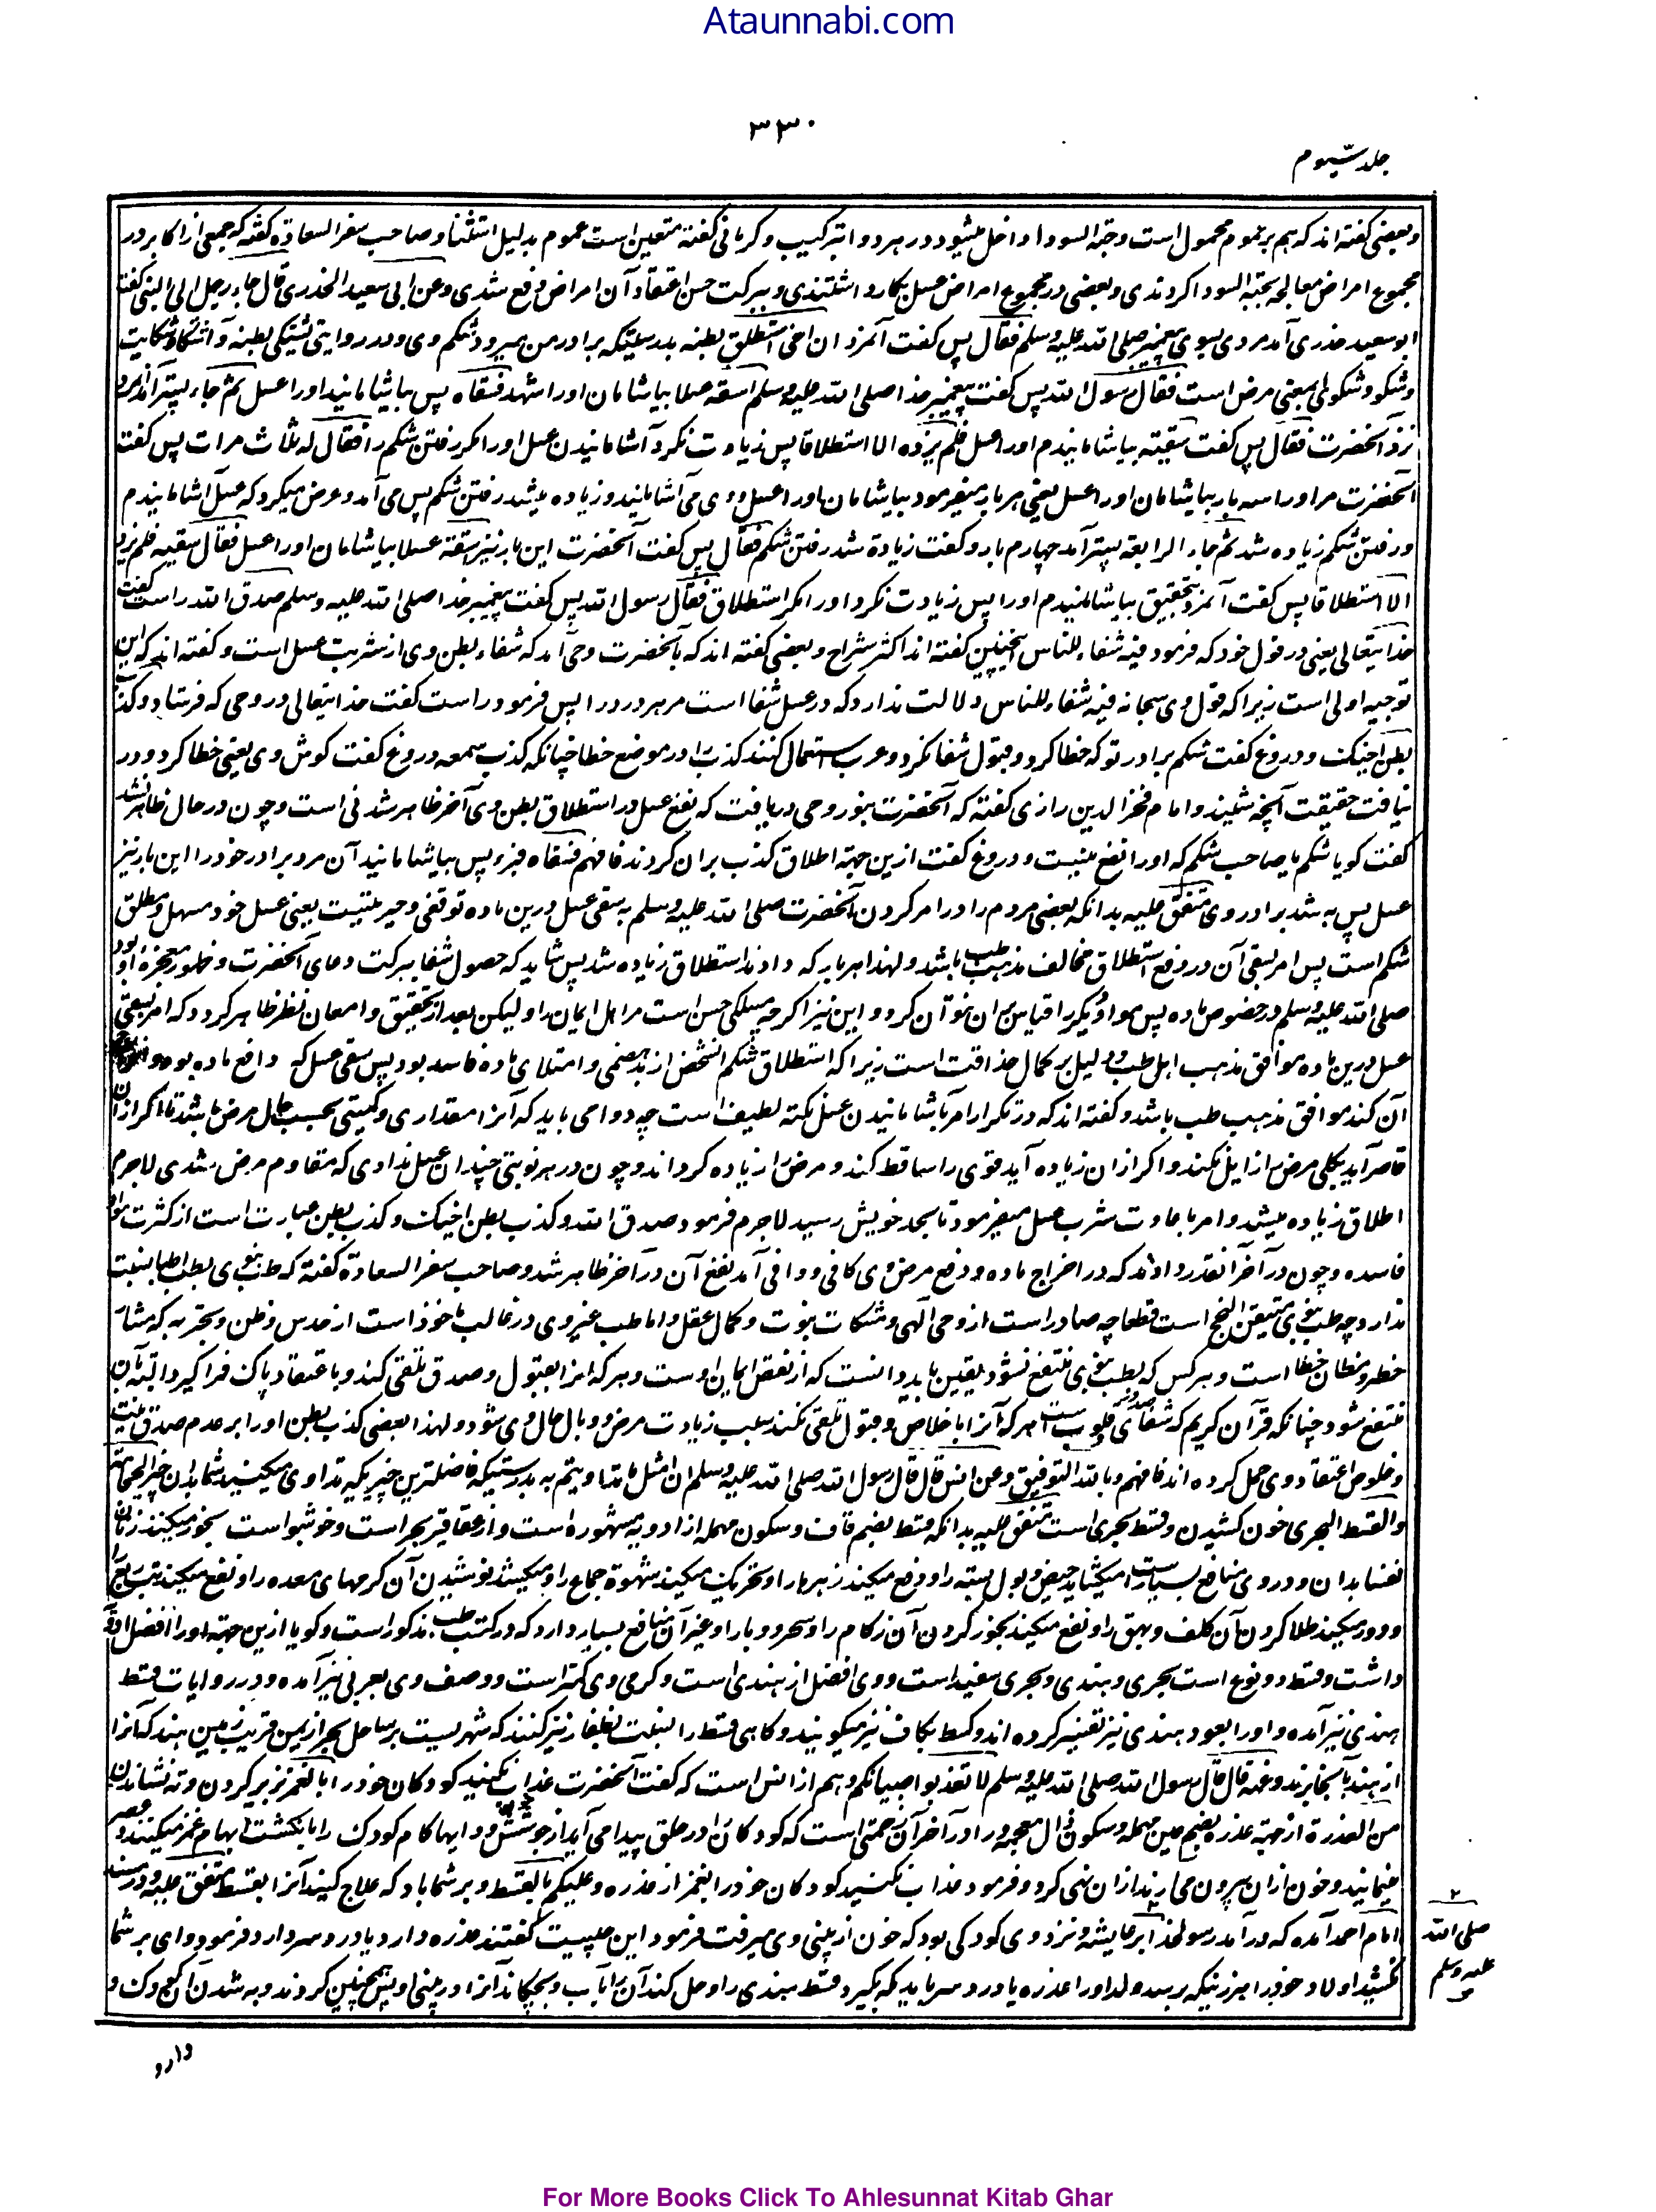 Ataunnabi.com
۳۳۰
جلد سیوم
وبعضی گفته اند که هم بر عموم محمول است وحبة السودا داخل میشود در هر دوا بترکیب وکرمانی گفته متعین است عموم بدلیل استثنا وصاحب سفر السعادة گفته که جمعی از اکابر در
مجموع امراض معالجه بحبة السودا کردندی وبعضی در مجموع امراض عسل بکار داشتندی وببرکت حسن اعتقاد آن امراض دفع شدی وعن ابی سعید الخدری قال جاء رجل الی النبی گفت
ابو سعید خدری آمد مردی بسوی پیغمبر صلی الله علیه وسلم فقال پس گفت آنمرد ان اخی استطلق بطنه بدرستیکه برادر من میرود شکم وی ودر روایتی یشتکی بطنه واشتکا وشکایت
وشکو وشکوی بمعنی مرض است فقال رسول الله پس گفت پیغمبر خدا صلی الله علیه وسلم اسقه عسلا بیاشامان او را شهد فسقاه پس بیاشامانید او را عسل ثم جاء پستر آمد آنمرد
نزد آنحضرت فقال پس گفت سقیته بیاشامانیدم او را عسل فلم یزده الا استطلاقا پس زیادت نکرد آشامانیدن عسل او را مگر رفتن شکم را فقال له ثلاث مرات پس گفت
آنحضرت مر او را سه بار بیاشامان او را عسل یعنی هر بار میفرمود بیاشامان او را عسل ووی می آشامانید وزیاده میشد رفتن شکم پس می آمد وعرض میکرد که عسل آشامانیدم
ورفتن شکم زیاده شد ثم جاء الرابعة پستر آمد چهارم بار وگفت زیادة شد رفتن شکم فقال پس گفت آنحضرت این بار نیز اسقه عسلا بیاشامان او را عسل فقال سقیته فلم یزده
الا استطلاقا پس گفت آنمرد بتحقیق بیاشامانیدم او را پس زیادت نکرد او را مگر استطلاق فقال رسول الله پس گفت پیغمبر خدا صلی الله علیه وسلم صدق الله راست گفت
خدایتعالی یعنی در قول خود که فرمود فیه شفاء للناس اینچنین گفته اند اکثر شراح وبعضی گفته اند که بآنحضرت وحی آمد که شفاء بطن وی از شربت عسل است وگفته اند که این
توجیه اولی است زیرا که قول وی سبحانه فیه شفاء للناس دلالت ندارد که در عسل شفا است مر هر درد را پس فرمود راست گفت خدایتعالی در وحی که فرستاد وکذب
بطن اخیک ودروغ گفت شکم برادر تو که خطا کرد وقبول شفا نکرد وعرب استعمال کنند کذب را در موضع خطا چنانکه کذب سمعه دروغ گفت گوش وی یعنی خطا کرد ودر
نیافت حقیقت آنچه شنید وامام فخر الدین رازی گفته که آنحضرت بنور وحی دریافت که نفع عسل در استطلاق بطن وی آخر ظاهر شدنی است وچون در حال ظاهر نشد
گفت گویا شکم یا صاحب شکم که او را نفع نیست ودروغ گفت ازین جهة اطلاق کذب بران کردند فافهم فسقاه فبرء پس بیاشامانید آن مرد برادر خود را این بار نیز
عسل پس به شد برادر وی متفق علیه بدانکه بعضی مردم را در امر کردن آنحضرت صلی الله علیه وسلم به سقی عسل درین ماده توقفی وحیرتیست یعنی عسل خود مسهل ومطلق
شکم است پس امر بسقی آن در دفع استطلاق مخالف مذهب طب باشد ولهذا هر بار که دادند استطلاق زیاده شد پس شاید که حصول شفا ببرکت دعای آنحضرت وظهور معجزه او بود
صلی الله علیه وسلم در خصوص ماده پس مواد دیگر را قیاس بران نتوان کرد واین نیز اگرچه مسلکی حسن است مر اهل ایمان را ولیکن بعد از تحقیق وامعان نظر ظاهر گردد که امر بسقی
عسل درین ماده موافق مذهب اهل طب ودلیل بر کمال حذاقت است زیرا که استطلاق شکم آنشخص از بدهضمی وامتلای ماده فاسد بود پس سقی عسل که دافع ماده بود
آن کند موافق مذهب طب باشد وگفته اند که در تکرار امر باشامانیدن عسل نکته لطیف است چه دوا می باید که آنرا مقداری وکمیتی بحسب حال مرض باشد تا اگر ازان
قاصر آید بکلی مرض را زایل نکند واگر ازان زیاده آید قوی را ساقط کند ومرض را زیاده گرداند وچون در هر نوبتی چندان عسل ندادی که مقاوم مرض شدی لاجرم
اطلاق زیاده میشد وامر باعادت شرب عسل میفرمود تا بحد خویش رسید لاجرم فرمود صدق الله وکذب بطن اخیک وکذب بطن عبارت است از کثرت مواد
فاسده وچون در آخر آنقدر دادند که در اخراج ماده ودفع مرض وی کافی ووافی آمد نفع آن در آخر ظاهر شد وصاحب سفر السعادة گفته که طب نبوی بطب اطبا نسبت
ندارد چه طب نبوی متیقن النجح است قطعا چه صادر است از وحی الهی ومشکات نبوت وکمال عقل واما طب غیر وی در غالب ماخوذ است از حدس وظن وتجربه که مثار
خطر ومظان خطا است وهر کس که بطب نبوی منتفع نشود یقین باید دانست که از نقص ایمان اوست وهر که انرا بقبول وصدق تلقی کند وباعتقاد پاک فرا گیرد البته بآن
منتفع شود چنانکه قرآن کریم که شفای صدور وقلوب است هر که آنرا باخلاص وقبول تلقی نکند سبب زیادت مرض ووبال حال وی شود ولهذا بعضی کذب بطن او را بر عدم صدق نیت
وخلوص اعتقاد وی حمل کرده اند فافهم وبالله التوفیق وعن انس قال قال رسول الله صلی الله علیه وسلم ان امثل ما تداویتم به بدرستیکه فاضلترین چیزیکه تداوی میکنید شما بدان چیز الحجامة
والقسط البحری خون کشیدن وقسط بحری است متفق علیه بدانکه قسط بضم قاف وسکون مهمله از ادویه مشهوره است واز عقاقیر بحر است وخوشبو است بخور میکنند زنان
نفسا بدان ودر وی منافع بسیار است میکشاید حیض وبول بسته را ودفع میکند زهرها را وتحریک میکند شهوة جماع را ومیکشد نوشیدن آن کرمهای معده را ونفع میکند تب ربع را
ودور میکند طلا کردن آن کلف وبهق را ونفع میکند بخور کردن آن زکام را وسحر ووبا را وغیر آن منافع بسیار دارد که در کتب طب مذکور است وگویا ازین جهة او را افضل ادویه
داشت وقسط دو نوع است بحری وهندی وبحری سفید است ووی افضل از هندی است وگرمی وی کمتر است ووصف وی بعربی نیز آمده ودر روایات قسط
هندی نیز آمده واو را بعود هندی نیز تفسیر کرده اند وکسط بکاف نیز میگویند وگاهی قسط را نسبت بظفار نیز کنند که شهریست بر ساحل بحر از یمن قریب زمین هند که آنرا
از هند بآنجا برند وعنه قال قال رسول الله صلی الله علیه وسلم لا تعذبوا صبیانکم وهم از انس است که گفت آنحضرت عذاب نکنید کودکان خود را بالغمز بزیر کردن وته نشاندن
من العذرة از جهة عذره بضم عین مهمله وسکون ذال معجمه ورا در آخر آن زحمتی است که کودکان را در حلق پیدا می آید از جوشش خون ودایها کام کودک را بانگشت ابهام غمز میکنند وعصر
مینمایند وخون ازان بیرون می ارند ازان نهی کرد وفرمود عذاب نکنید کودکان خود را بغمز از عذره وعلیکم بالقسط وبر شما باد که علاج کنید آنرا بقسط متفق علیه ودر مسند
امام احمد آمده که در آمد رسول خدا بر عایشه ونزد وی کودکی بود که خون از بینی وی میرفت فرمود این چیست گفتند عذره دارد یا درد سر دارد فرمود وای بر شما
نکشید اولاد خود را هر زنیکه برسد ولد او را عذره یا درد سر باید که بگیرد قسط هندی را وحل کند آن را بآب وبچکاند آنرا در بینی او پس همچنین کردند وبه شد آن کودک و
صلی الله
علیه وسلم
وارد
For More Books Click To Ahlesunnat Kitab Ghar